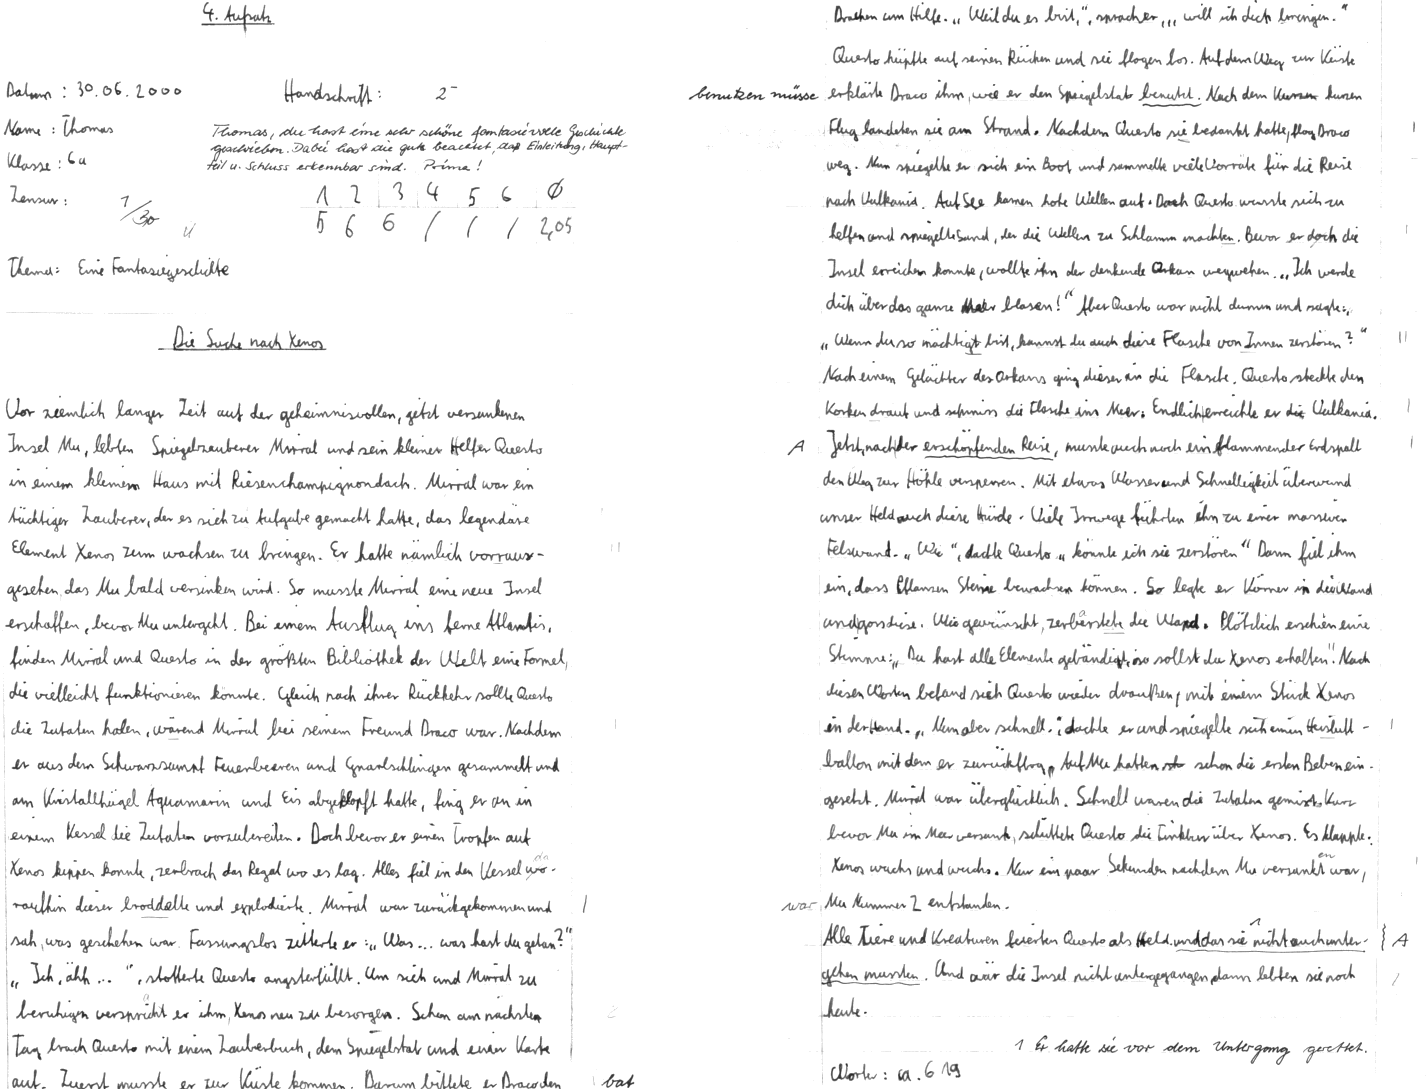 4. Aufsatz
Datum : 30.06.2000
Handschrift : 2-
Name : Thomas
Klasse : 6a
Thomas, du hast eine sehr schöne fantasievolle Geschichte
geschrieben. Dabei hast die gute beachtet, dass Einleitung, Haupt-
teil u. Schluss erkennbar sind. Prima!
Zensur :
1 2 3 4 5 6 Ø
5 6 6 / / / 2,05
Thema: Eine Fantasiegeschichte
Die Suche nach Xenos
Vor ziemlich langer Zeit auf der geheimnisvollen, jetzt versunkenen
Insel Mu, lebten Spiegelzauberer Mirral und sein kleiner Helfer Questo
in einem kleinem Haus mit Riesenchampignondach. Mirral war ein
tüchtiger Zauberer, der es sich zu Aufgabe gemacht hatte, das legendäre
Element Xenos zum wachsen zu bringen. Er hatte nämlich vorraus-
gesehen, das Mu bald versinken wird. So musste Mirral eine neue Insel
erschaffen, bevor Mu untergeht. Bei einem Ausflug ins ferne Atlantis,
finden Mirral und Questo in der größten Bibliothek der Welt eine Formel,
die vielleicht funktionieren könnte. Gleich nach ihrer Rückkehr sollte Questo
die Zutaten holen, wärend Mirral bei seinem Freund Draco war. Nachdem
er aus dem Schwarzsumpf Feuerbeeren und Gnartschlingen gesammelt und
am Kristallhügel Aquamarin und Eis abgeklopft hatte, fing er an in
einem Kessel die Zutaten vorzubereiten. Doch bevor er einen Tropfen auf
Xenos kippen konnte, zerbrach das Regal wo es lag. Alles fiel in den Kessel wo-
raufhin dieser broddelte und explodierte. Mirral war zurückgekommen und
sah, was geschehen war. Fassungslos zitterte er: „Was... was hast du getan?"
„Ich, ähh ...", stotterte Questo angsterfüllt. Um sich und Mirral zu
beruhigen verspricht er ihm, Xenos neu zu besorgen. Schon am nächsten
Tag brach Questo mit einem Zauberbuch, dem Spiegelstab und einer Karte
auf. Zuerst musste er zur Küste kommen. Darum bittete er Draco den
bat
Drachen um Hilfe. „Weil du es bist,", sprach er, „will ich dich bringen."
Questo hüpfte auf seinen Rücken und sie flogen los. Auf dem Weg zur Küste
benutzen müsse
erklärte Draco ihm, wie er den Spiegelstab benutzt. Nach dem kurzen
Flug landeten sie am Strand. Nachdem Questo sie bedankt hatte, flog Draco
weg. Nun spiegelte er sich ein Boot und sammelte viele Vorräte für die Reise
nach Vulkania. Auf See kamen hohe Wellen auf. Doch Questo wusste sich zu
helfen und spiegelte Sand, der die Wellen zu Schlamm machten. Bevor er doch die
Insel erreichen konnte, wollte ihn der denkende Orkan wegwehen. „Ich werde
dich über das ganze Meer blasen!" Aber Questo war nicht dumm und sagte:
„Wenn du so mächtig bist, kannst du auch diese Flasche von Innen zerstören?"
Nach einem Gelächter des Orkans ging dieser in die Flasche. Questo steckte den
Korken drauf und schmiss die Flasche ins Meer. Endlich erreichte er die Vulkania.
A
Jetzt, nach der erschöpfenden Reise, musste auch noch ein flammender Erdspalt
den Weg zur Höhle versperren. Mit etwas Wasser und Schnelligkeit überwand
unser Held auch diese Hürde. Viele Irrwege führten ihn zu einer massiven
Felswand. „Wie", dachte Questo „könnte ich sie zerstören" Dann fiel ihm
ein, dass Pflanzen Steine bewachsen können. So legte er Körner in die Wand
und goss diese. Wie gewünscht, zerberstete die Wand. Plötzlich erschien eine
Stimme: „Du hast alle Elemente gebändigt, so sollst du Xenos erhalten". Nach
diesen Worten befand sich Questo wieder draußen, mit einem Stück Xenos
in der Hand. „Nun aber schnell.", dachte er und spiegelte sich einen Heisluft-
ballon mit dem er zurückflog. Auf Mu hatten schon die ersten Beben ein-
gesetzt. Mirral war überglücklich. Schnell waren die Zutaten gemixt. Kurz
bevor Mu im Meer versank, schüttete Questo die Tinktur über Xenos. Es klappte.
Xenos wuchs und wuchs. Nur ein paar Sekunden nachdem Mu versunkt war,
en
war
Mu Nummer 2 entstanden.
Alle Tiere und Kreaturen feierten Questo als Held und das sie nicht auch unter-
A
gehen mussten. Und wär die Insel nicht untergegangen, dann lebten sie noch
heute.
1 Er hatte sie vor dem Untergang gerettet.
Wörter : ca. 619